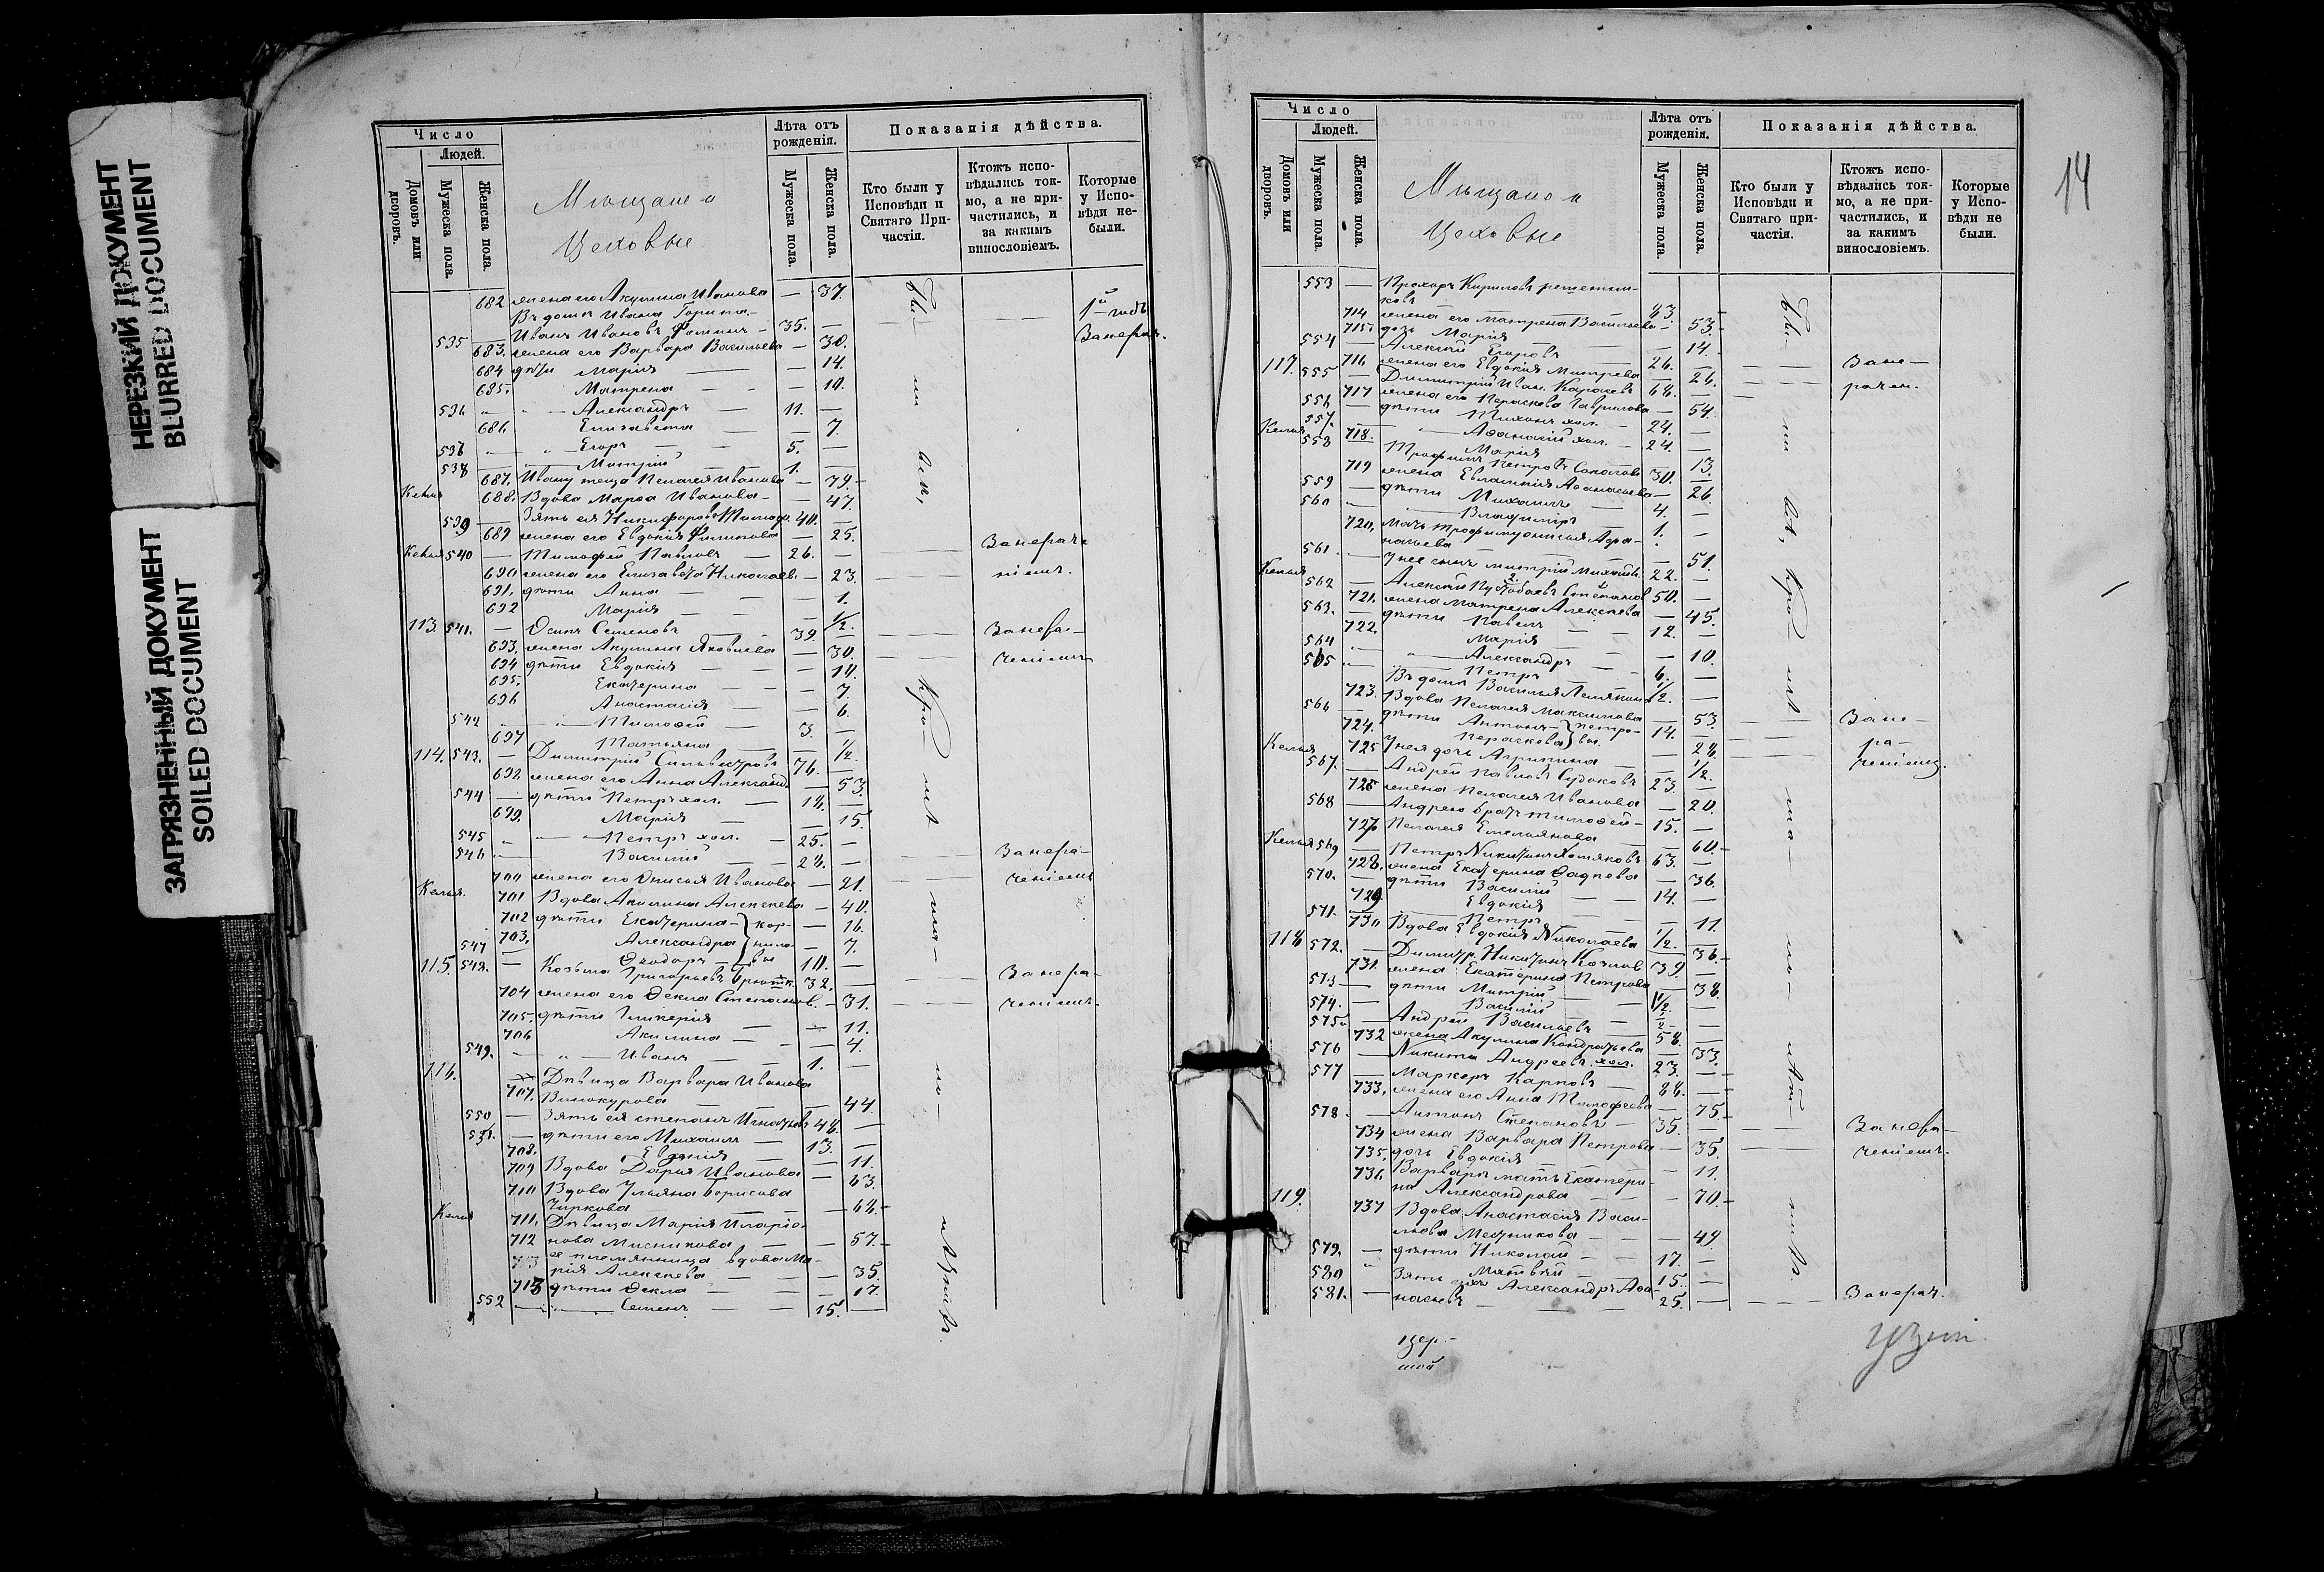 НЕРЕЗКИЙ ДОКУМЕНТ
BLURRED DOCUMENT
ЗАГРЯЗНЕННЫЙ ДОКУМЕНТ
SOILED DOCUMENT
Число
Людей.
Домовъ или дворовъ.
Мужеска пола.
Женска пола.
Мѣщане и
Цеховые
Лѣта отъ рожденія.
Мужеска пола.
Женска пола.
Показанія дѣйства.
Кто были у Исповѣди и Святаго Причастія.
Ктожъ исповѣдались токмо, а не причастились, и за какимъ винословіемъ.
Которые у Исповѣди небыли.
682 жена его Акулина Иванова — 37.
Въ домѣ Ивана
535 — Иванъ Ивановъ 35. —
683. жена его Варвара Васильева — 30.
684 дѣти Марія — 14.
685. Матрена — 10.
536 " " Александръ — 11. —
686 Елизавета — 7.
537 " " Егоръ — 5. —
538 — " Митрій — 1. —
687. Ивану теща Пелагея Иванова — 79.
Келья 688. Вдова Марѳа Иванова — 47.
539 — Зять ея Никифоръ 40. —
689 жена его Евдокія Филипова — 25.
Келья 540 — Тимофей Павловъ — 26. —
690 жена его Елизавета Николаев. — 23.
691. дѣти Анна — 1.
692 Марія — 1/2.
113. 541. — Осипъ Семеновъ — 39. —
693. жена Акулина Яковлева — 30.
694 дѣти Евдокія — 10.
695. Екатерина — 7.
696 Анастасія — 6.
542 " " Тимоѳей — 3. —
697 Татьяна — 1/2.
114. 543. — Димитрій Сильвестровъ 76. —
698 жена его Анна Александ. — 53.
544 — дѣти Петръ хол. — 18. —
699. Марія — 15.
545 " " Петръ хол. — 25. —
546 " Василій — 28. —
700 жена его Онисья Иванова — 21.
Келья. 701 Вдова Акилина Алексеева — 40.
702 дѣти Екатерина — 16.
703. Александра — 7.
547 — Ѳеодоръ — 10. —
115. 548. — Козьма Григорьевъ 32. —
704 жена его Ѳекла Степанов. — 31.
705. дѣти Гликерія — 11.
706 Акилина — 4.
549. — " — Иванъ — 1. —
116. Дѣвица Варвара Иванова
707. Винокурова — 44.
550 — Зять ея Степанъ Игнатьевъ 48. —
551. — дѣти его Михаилъ — 13. —
708. Евгенія — 11.
709 Вдова Дарья Иванова — 63.
710 Вдова Ульяна Борисова
Чиркова — 68.
Келья 711. Дѣвица Марія Иларіо-
712 нова Мясникова — 57.
713 ея племянница вдова Ма-
рія Алексеева — 35.
713 дѣти Ѳекла — 17.
552 — " — Семенъ — 15. —
1й годъ
Занерач.
Занераче
ніемъ.
Занера-
ченіемъ
Занера-
ченіемъ
Занера-
ченіемъ.
Бы- ли всѣ, кромѣ
14
Число
Людей.
Домовъ или дворовъ.
Мужеска пола.
Женска пола.
Мѣщане и
Цеховые
Лѣта отъ рожденія.
Мужеска пола.
Женска пола.
Показанія дѣйства.
Кто были у Исповѣди и Святаго причастія.
Ктожъ исповѣдались токмо, а не причастились, и за какимъ винословіемъ.
Которые у Исповѣди не были.
553 — Прохоръ Кириловъ Решетни-
ковъ 83 —
714 жена его Матрена Васильева — 53.
715 дочь Марія — 14.
554 — Алексѣй Егоровъ — 26. —
117. 716 жена его Евдокія Митрева — 26.
555 — Димитрій Иван. Карасевъ 68. —
717 жена его Пераскева Гаврилова — 54.
556 — дѣти Тихонъ хол. — 24. —
557. " Аѳанасій хол. — 24. —
Келья 718. Марія — 13.
558 Трофимъ Петровъ Соколовъ 30. —
719 жена Евлампія Аѳанасьева — 26.
559 — дѣти Михаилъ — 4. —
560 " Владиміръ — 1. —
720. Мать Трофиму Онисья Аѳа-
насьева — 51.
561. — У нее сынъ Митрій Михайл. 22. —
Келья 562 — Алексѣй Степановъ 50. —
721. жена Матрена Алексеева — 45.
563. — дѣти Павелъ — 12. —
722. Марія — 10.
564 " Александръ — 6. —
565 " Петръ — 1/2. —
Въ домѣ Василья
723. Вдова Пелагея Максимова — 53.
566 — дѣти Антонъ — 14. —
724. Пераскева — 28.
725 У нея дочь Агрипина — 1/2.
Келья 567. — Андрей Павловъ Судаковъ 23. —
726 жена Пелагея Иванова — 20.
568 — Андрею братъ Тимоѳей — 15. —
727 Пелагея Емельянова — 60.
Келья 569 — Петръ Никитинъ Хомяковъ 63. —
728. жена Екатерина Ѳадеева — 36.
570. — дѣти Василій — 14. —
729 Евдокія — 11.
571. — Петръ — 1/2. —
730 Вдова Евдокія Николаева — 36.
118 572. — Димитр. Никитинъ Козлов 39. —
731. жена Екатерина Петрова — 38.
573 — дѣти Митрій —
574. — Василій —
575. — Андрей Васильевъ — 58. —
732 жена Акулина Кондратьева — 33.
576 — Никита Андреевъ. хол. 23. —
577 — Маркеръ Карповъ — 88. —
733. жена его Анна Тимофеева — 75.
578. — Антонъ Степановъ — 35. —
734 жена Варвара Петрова — 35.
735. дочь Евдокія — 11.
736 Варвары мать Екатери-
на Александрова — 70.
119. 737 Вдова Анастасія Васи-
льева Мечникова — 49.
579. — дѣти Николай — 17. —
580 " Матвѣй — 15. —
581. — Зять ихъ Александръ Аѳа-
насьевъ — 25. —
Зане-
рачен.
Зане-
ра-
ченіемъ.
Занера-
ченіемъ.
Занерач.
Бы- ли всѣ, кромѣ